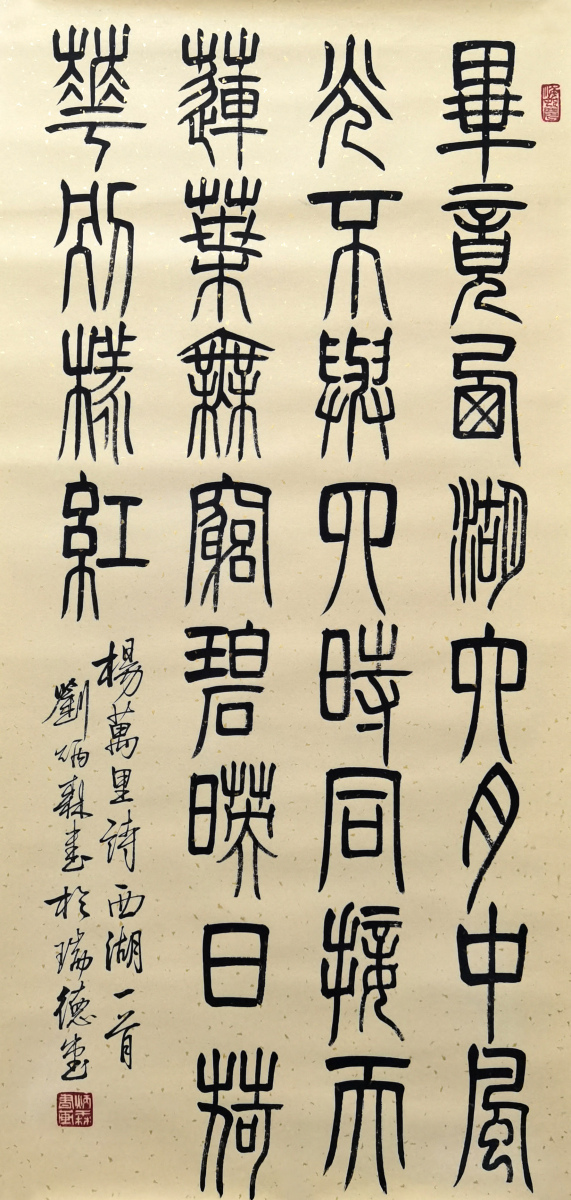 畢竟西湖六月中風
光不與四時同接天
蓮葉無窮碧暎日荷
華別樣紅
楊萬里詩西湖一首
劉炳森書於瑞德堂